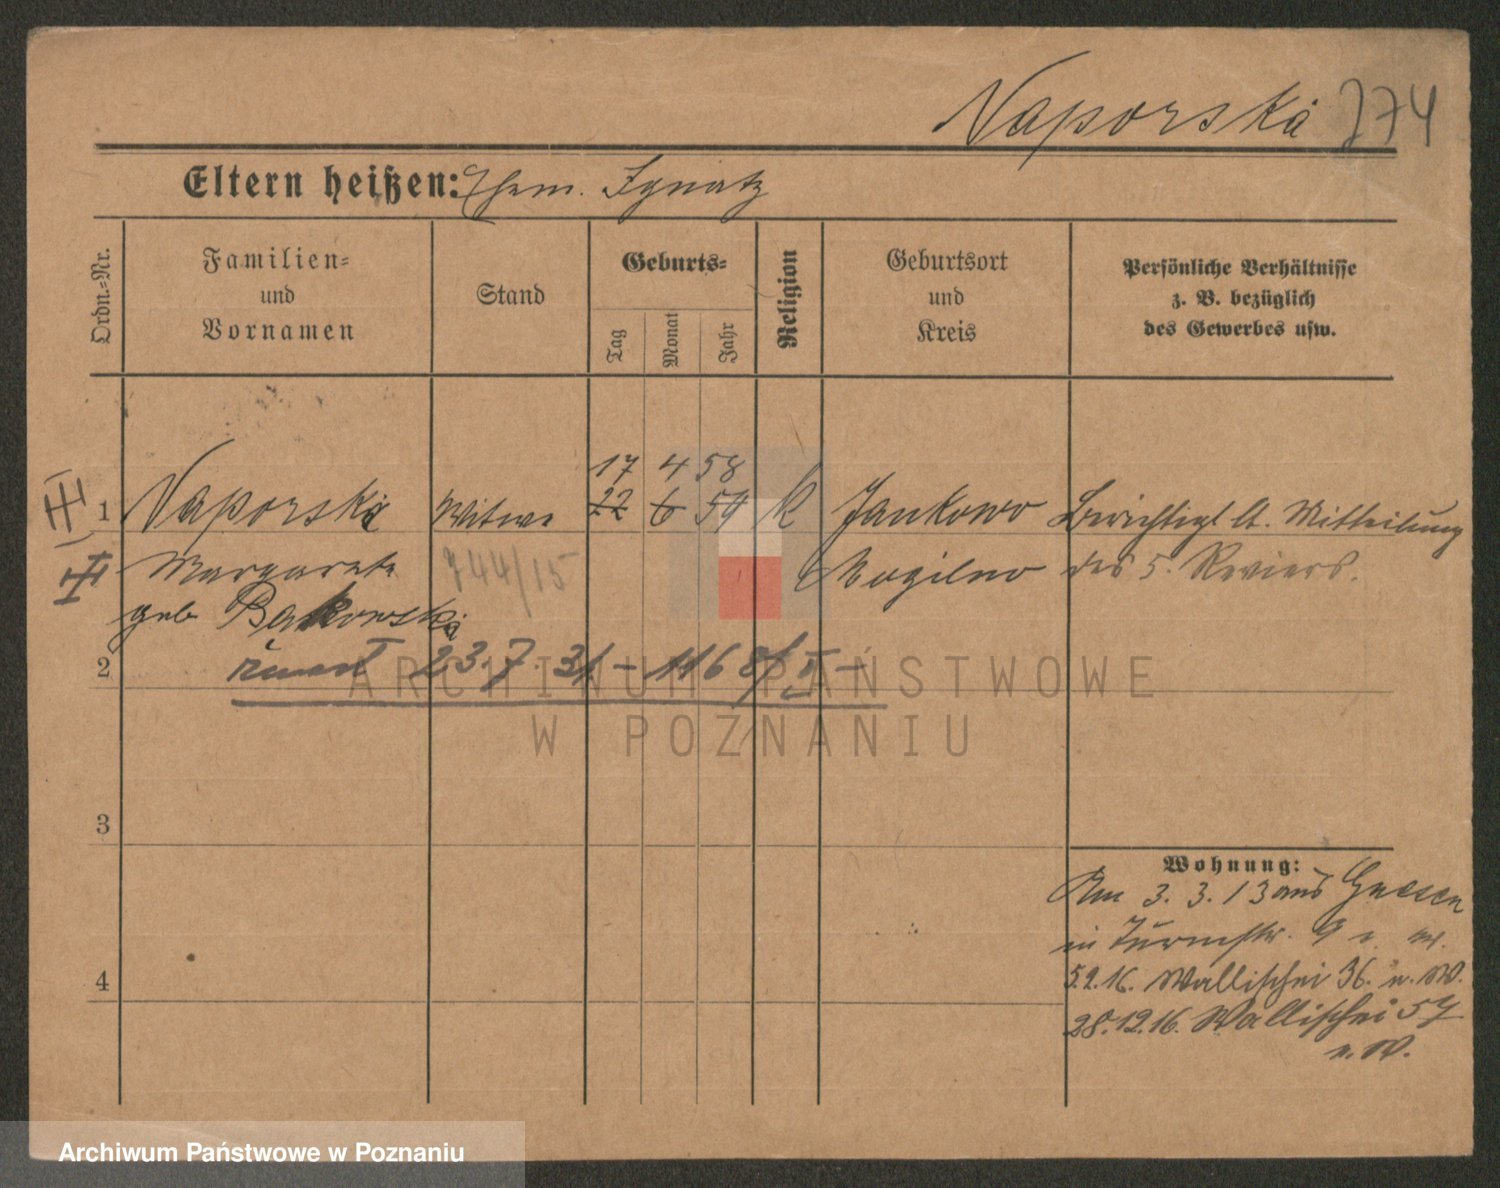 Naporska 274
Eltern heißen: Ehem. Ignatz
Ordn.-Nr.
Familien-
und
Vornamen
Stand
Geburts-
Tag
Monat
Jahr
Religion
Geburtsort
und
Kreis
Persönliche Verhältnisse
z. B. bezüglich
des Gewerbes usw.
17 4 58
1 Naporska Witwe 22 6 54 k Jankowo Berichtigt lt. Mitteilung
Margarete 744/15 Mogilno des 5. Reviers.
geb Bąkowska
2 zmarł 23.7.31 – 1168/II –
3
4
Wohnung:
Am 3.3.13 aus Gnesen
in Turmstr. 9
5.2.16. Wallischei 36. n. W.
28.12.16. Wallischei 57
n. W.
ARCHIWUM PAŃSTWOWE
W POZNANIU
Archiwum Państwowe w Poznaniu